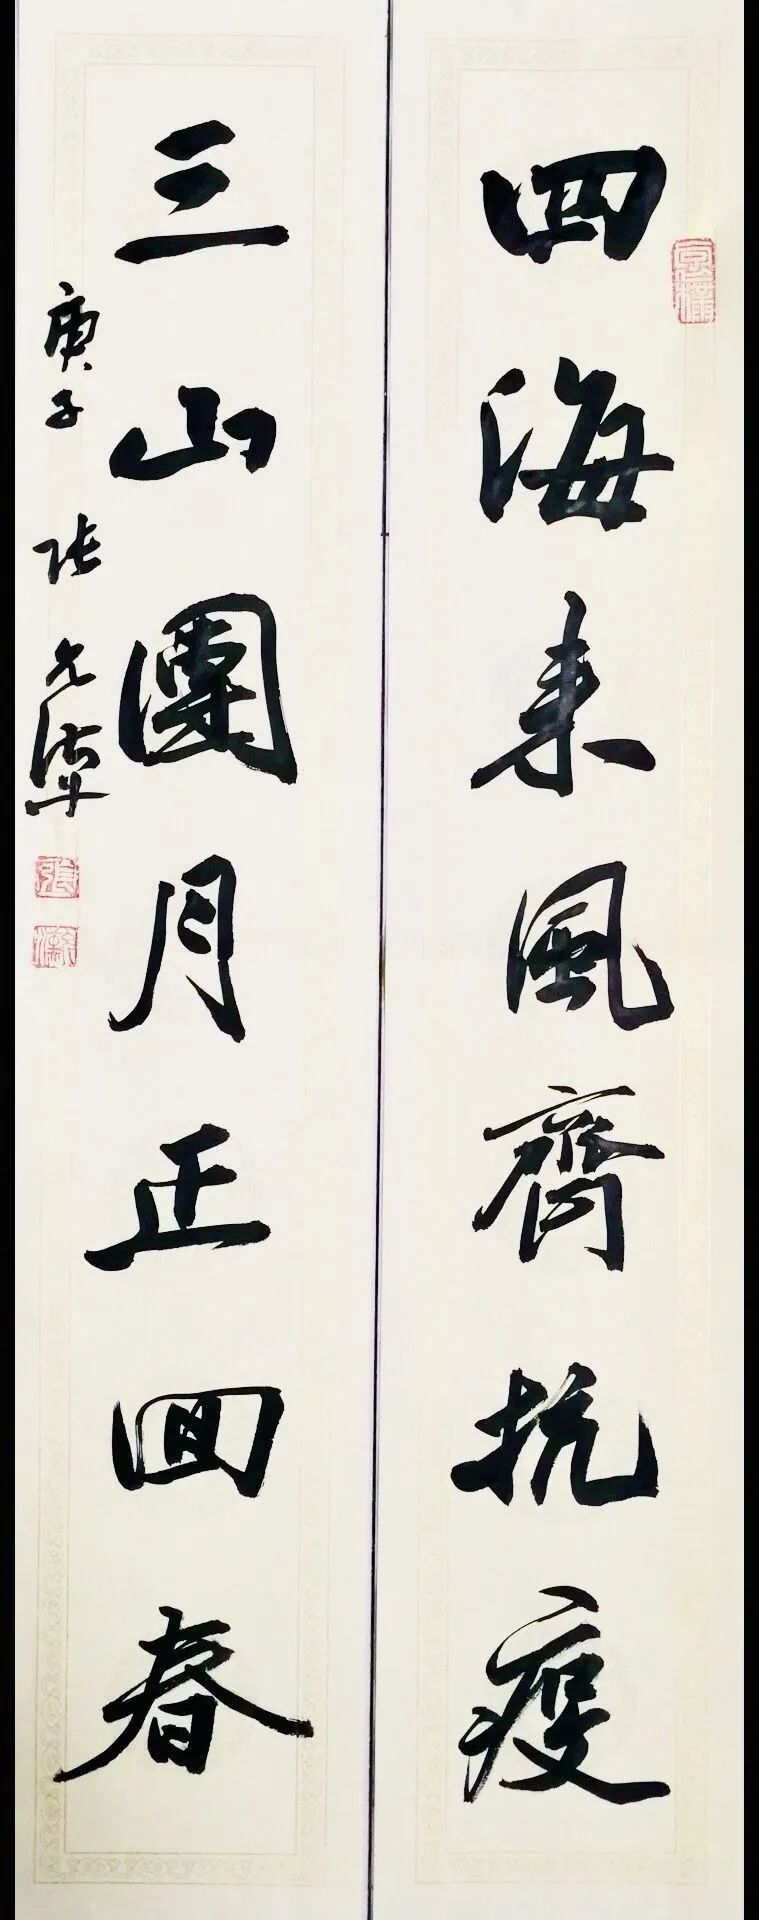 四海來風齊抗疫
三山團月正回春
庚子 张
張